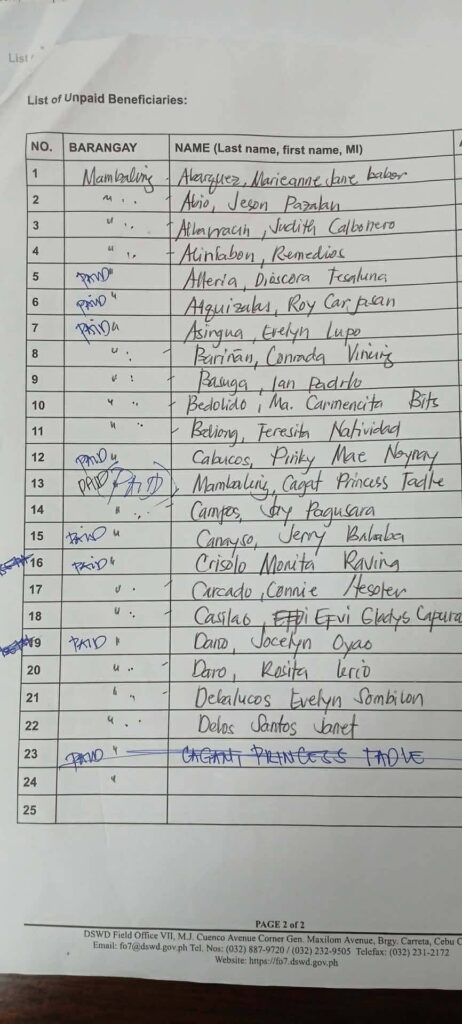 List
List of Unpaid Beneficiaries:
NO. BARANGAY NAME (Last name, first name, MI)
1 Mambaling Abarquez, Marieanne Jane babor
2 " Abio, Jeson Pazalan
3 " Judith Calbonero
4 " Alinfabon, Remedios
5 PAID " Alteria, Dioscora Tesaluna
6 PAID " Alquizalas, Roy Carpasan
7 PAID " Asingua, Evelyn Lupo
8 " Bariñan, Conrada
9 " Basuga, Ian Padrlo
10 " Bedolido, Ma. Carmencita Bits
11 " Beliong, Teresita Natividad
12 PAID " Cabucos, Pinky Mae Noynay
13 PAID PAID Mambaling, Cagat Princess Tadle
14 " Campos, Jay Pagusara
15 PAID " Canayso, Jerry Balaba
16 PAID " Crisolo Monita Ravina
17 " Curcado, Connie
18 " Casilao, Efvi Gladys Capura
19 PAID " Daño, Jocelyn Oyao
20 " Daro, Rosita
21 " Debalucos Evelyn Sombilon
22 " Delos Santos Janet
23 PAID " CAGANT PRINCESS TADLE
24 "
25
PAGE 2 of 2
DSWD Field Office VII, M.J. Cuenco Avenue Corner Gen. Maxilom Avenue, Brgy. Carreta, Cebu C
Email: fo7@dswd.gov.ph Tel. Nos: (032) 887-9720 / (032) 232-9505 Telefax: (032) 231-2172
Website: https://fo7.dswd.gov.ph